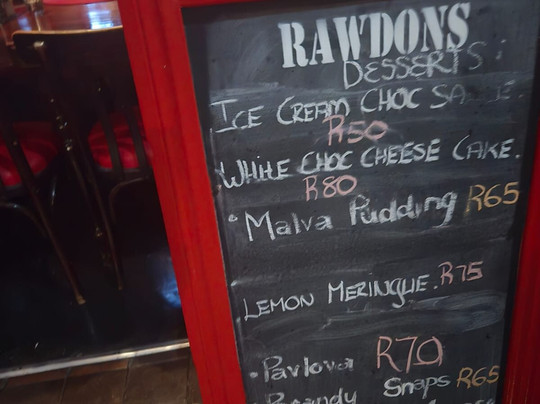 RAWDONS
DESSERTS:
ICE CREAM CHOC
R50
WHITE CHOC CHEESE CAKE.
R80
• Malva Pudding R65
LEMON MERINGUE. R75
• Pavlova R70
• Brandy Snaps R65